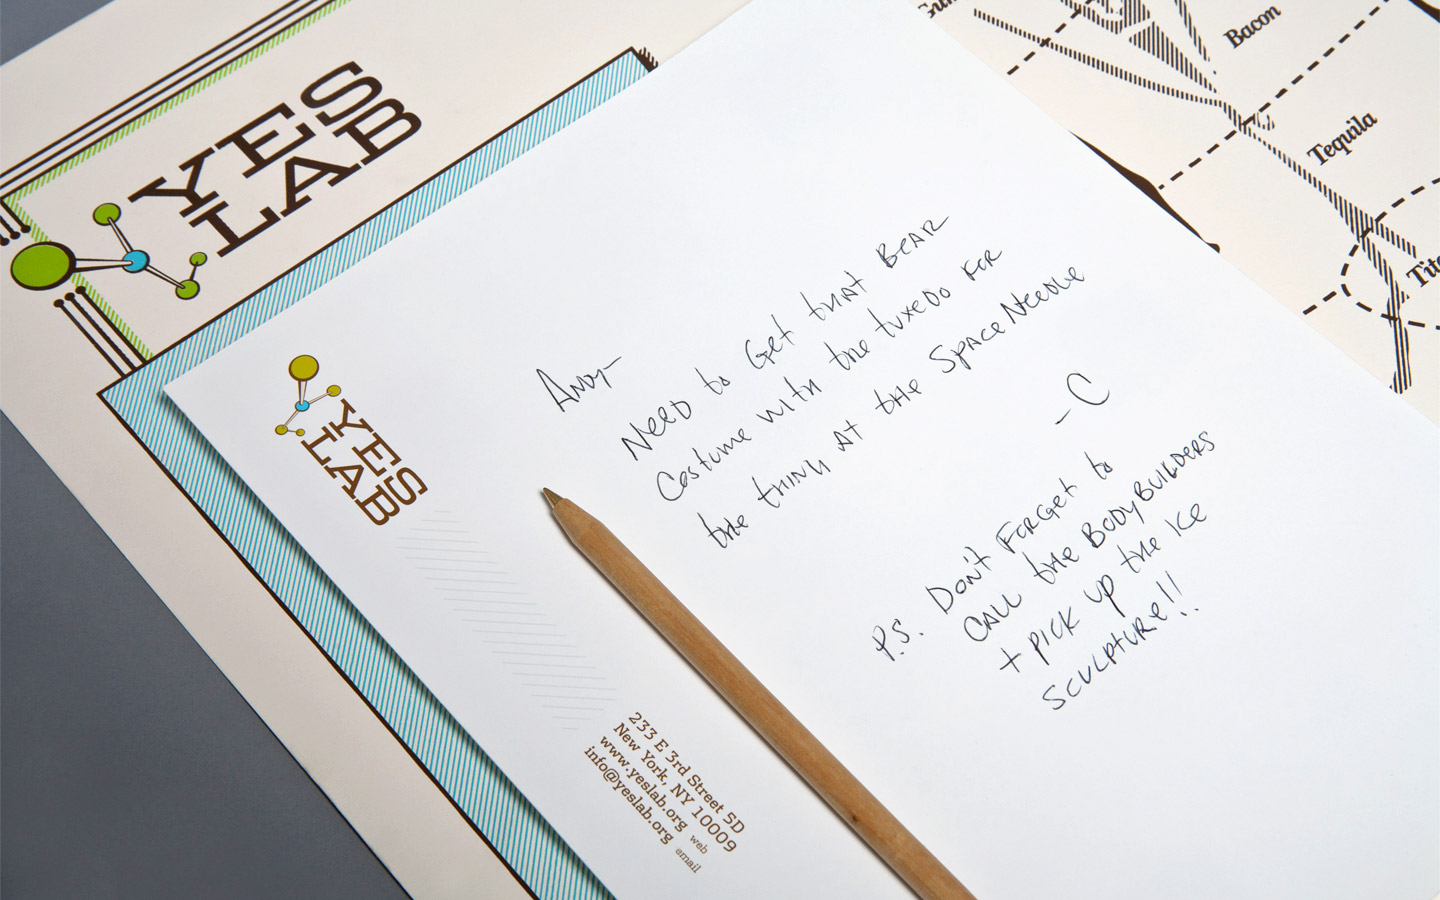 YES
LAB
Bacon
Tequila
YES
LAB
Andy-
Need to Get that Bear
Costume with the tuxedo for
the thing at the Space Needle
- C
P.S. Don't Forget to
Call the Bodybuilders
+ pick up the Ice
Sculpture!!
233 E 3rd Street 5D
New York, NY 10009
www.yeslab.org web
info@yeslab.org email